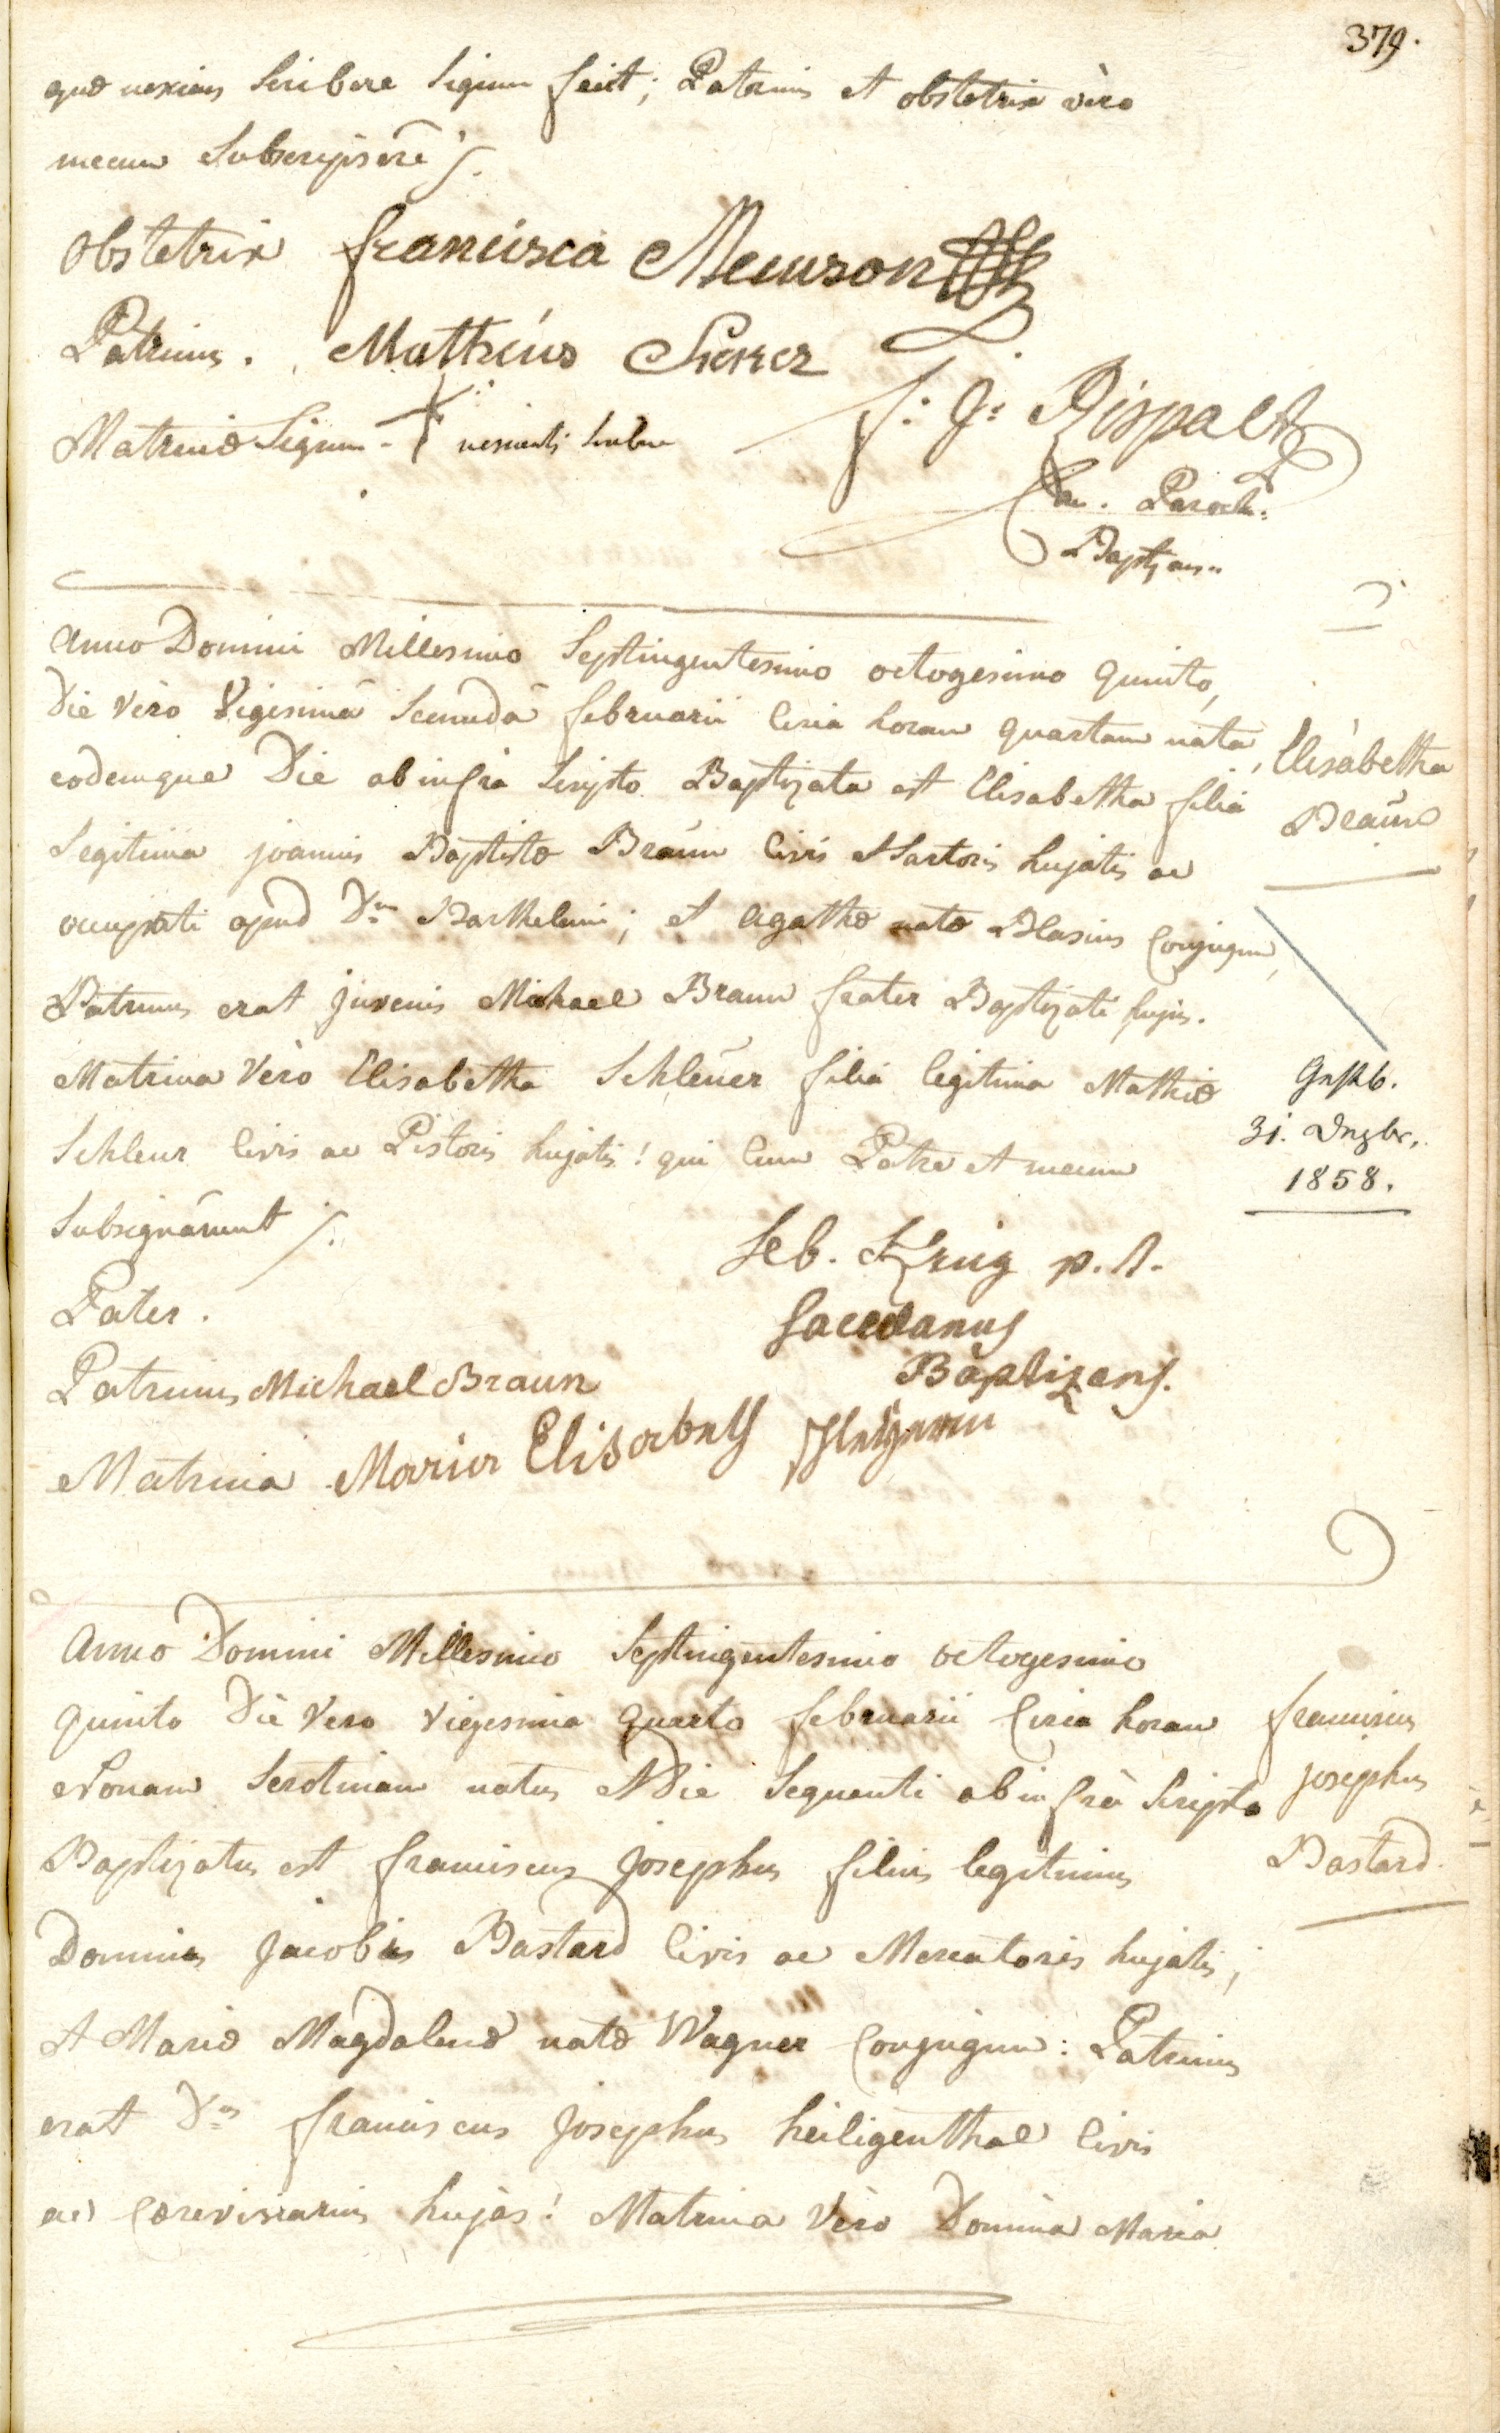 379.
quæ nesciens scribere signum fecit; Patrinus et obstetrix vèro
mecum Subscripsêre ·/.
Obstetrix francisca Meurson
Patrinus. Mathæus
Matrinæ Signum + nescientis scribere
f: J: Rispalt
Can. Paroch:
Baptizans.
Anno Domini Millesimo Septingentesimo octogesimo quinto,
Die vèro Vigesimâ Secundâ februarii Circa horam quartam nata,
eodemque Die ab infra scripto Baptizata est Elisabetha filia
Legitima joannis Baptistæ Braun Civis et Sartoris hujatis ac
occupati apud Dnum Barthelemi; et Agathæ natæ Blasius Conjugum,
Patrinus erat Juvenis Michael Braun frater Baptizati hujus.
Matrina Vèro Elisabetha Schleüer filia legitima Mathiæ
Schleur Civis ac Pistoris hujatis! qui Cum Patre et mecum
Subsignârunt ·/.
Elisabetha
Braün
Gestb.
31. Dezbr.
1858.
Seb. Krug p. t.
Sacellanus
Baptizans.
Pater.
Patrinus Michael Braun
Matrina Maria Elisabeth
Anno Domini Millesimo Septingentesimo octogesimo
quinto Die Vero Vigesima quarta februarii Circa horam
Nonam Serotinam natus et Die Sequenti ab infrà Scripto
Baptizatus est franciscus Josephus filius legitimus
Domini Jacobi Bastard Civis ac Mercatoris hujatis;
et Mariæ Magdalenæ natæ Wagner Conjugum: Patrinus
erat Dnus franciscus Josephus heiligenthal Civis
ac Cerevisiarius hujas! Matrina Vèro Domina Maria
franciscus
josephus
Bastard.